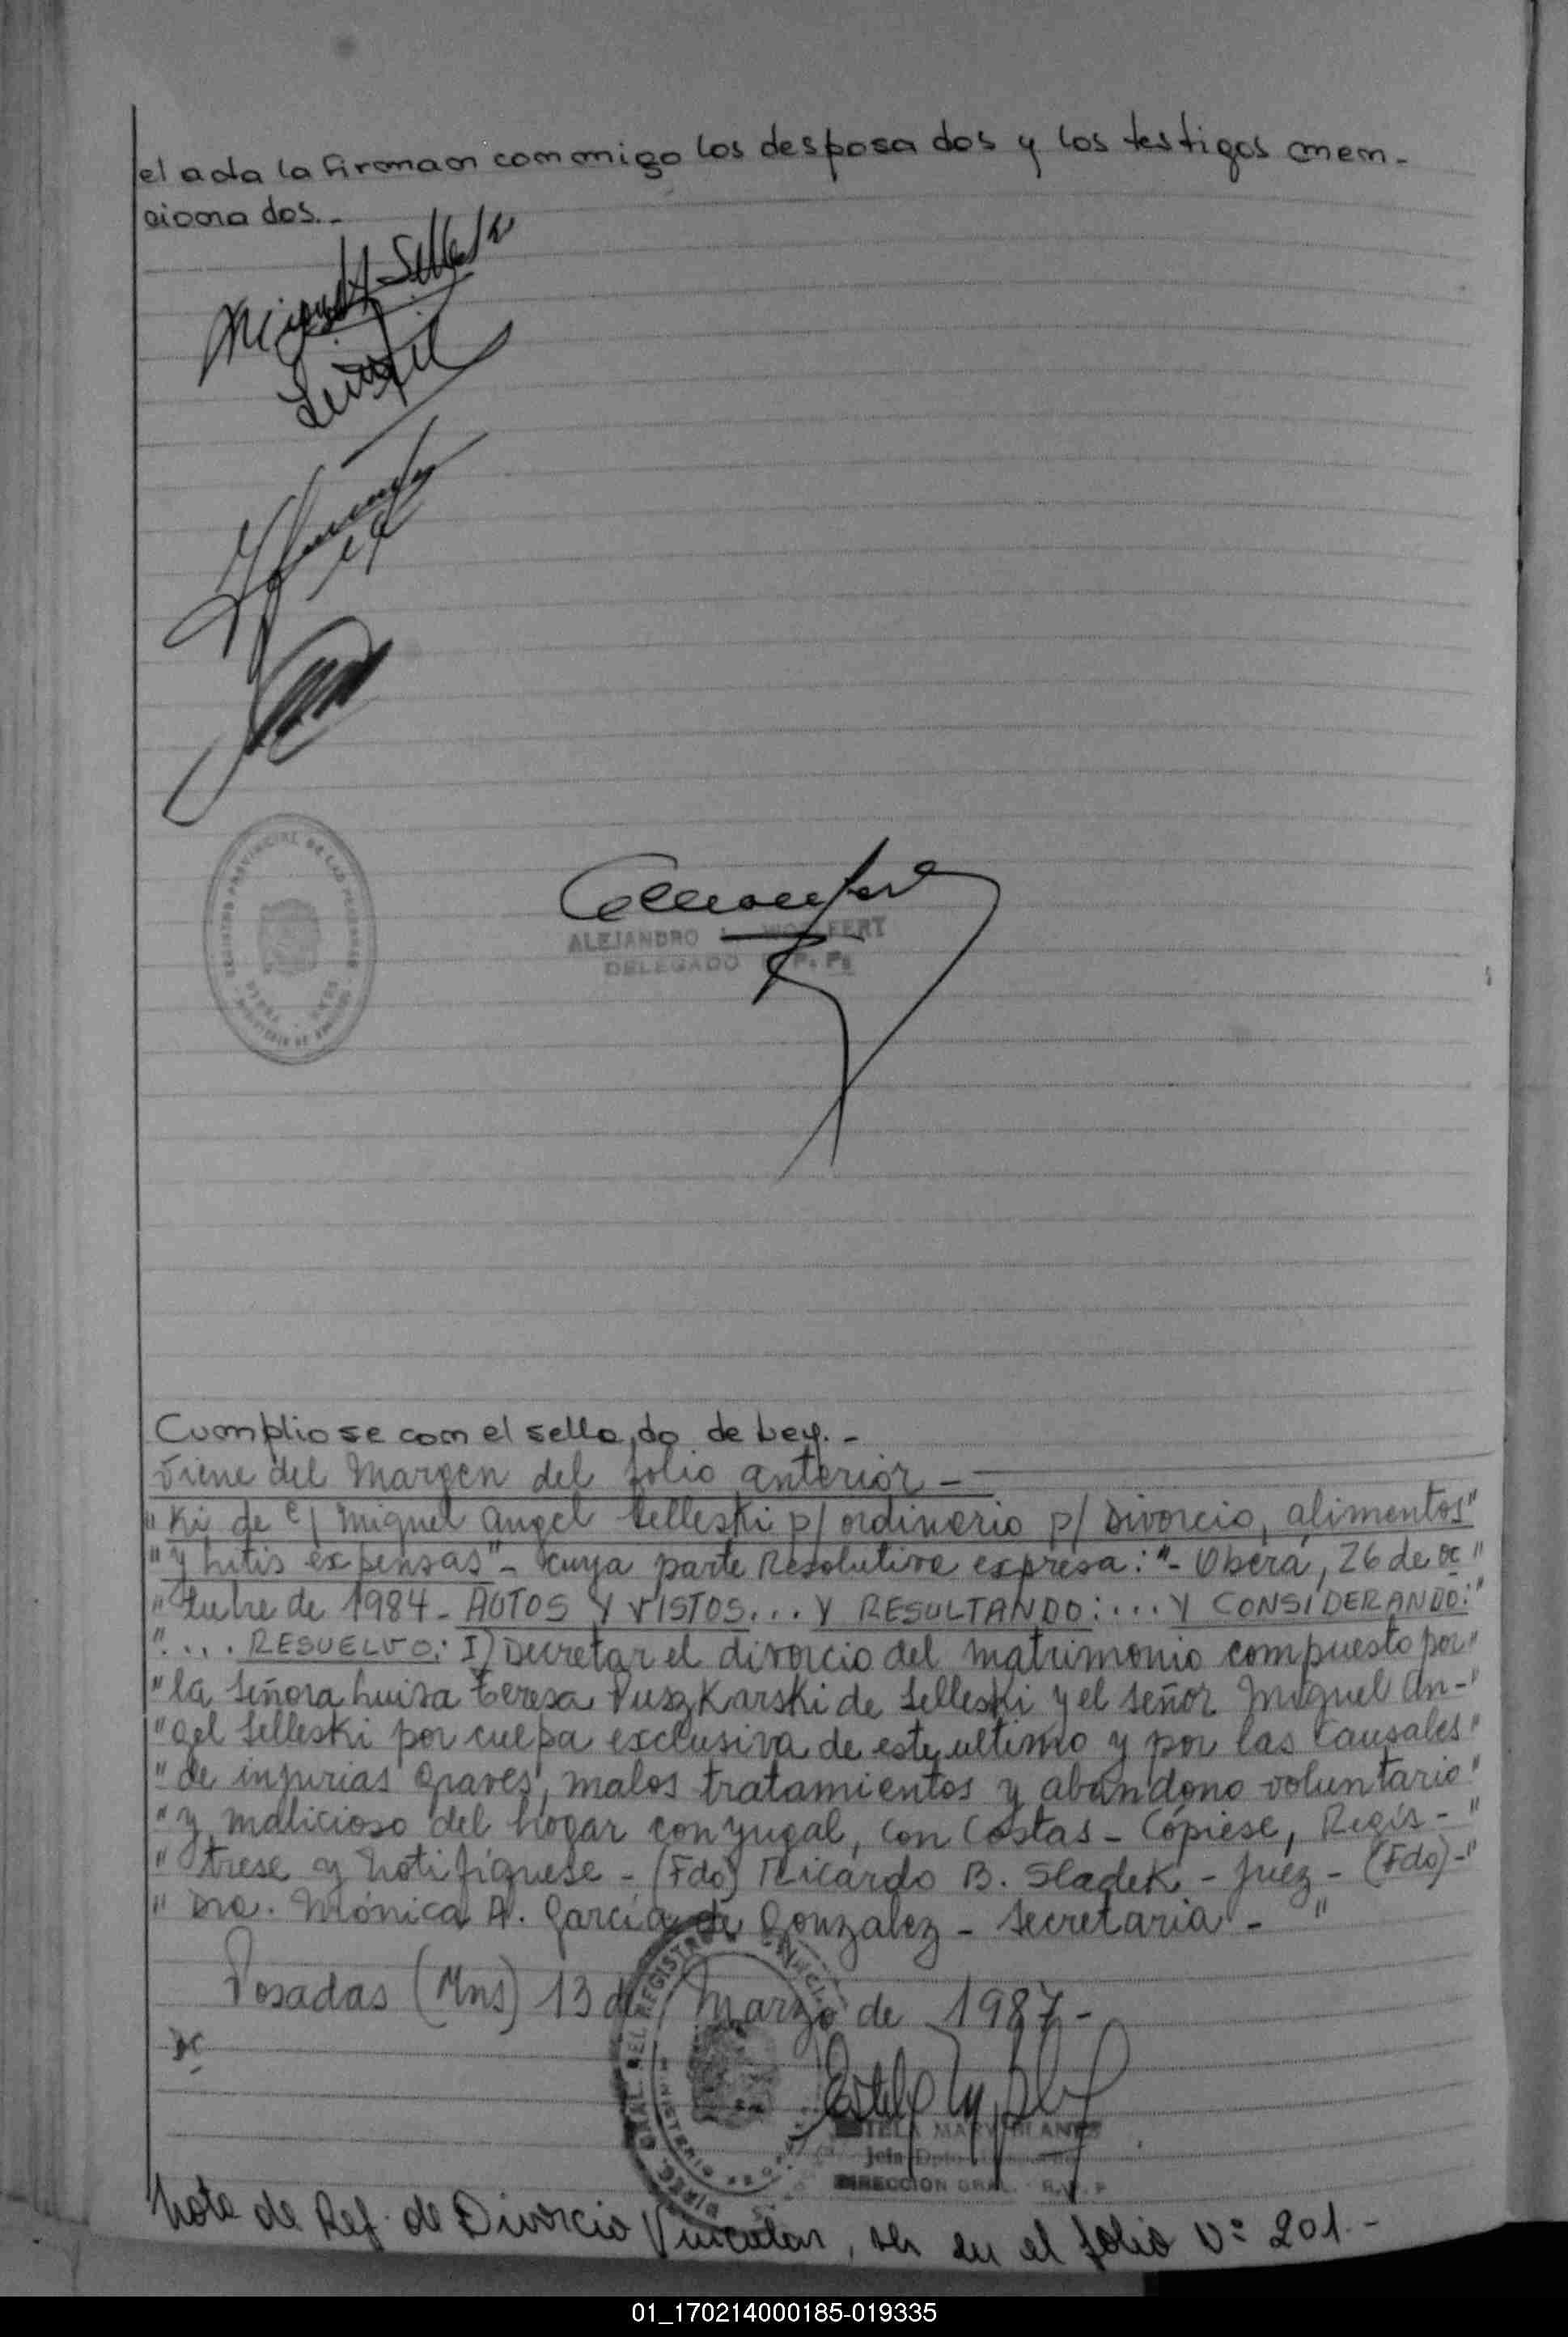 el acta la firman conmigo los desposados y los testigos men-
cionados.-
ALEJANDRO
DELEGADO
Cumpliose con el sellado de Ley.-
Viene del Margen del folio anterior -
"Ki de c/ Miguel Angel Selleski p/ ordinario p/ Divorcio, alimentos"
"y Litis expensas"- cuya parte Resolutiva expresa: "- Oberá, 26 de oc"
"tubre de 1984- AUTOS Y VISTOS... Y RESULTANDO:.... Y CONSIDERANDO:"
".... RESUELVO: I) Decretar el divorcio del matrimonio compuesto por"
"la Señora Luisa Teresa PuszKarski de Selleski y el señor Miguel An-"
"gel Selleski por culpa exclusiva de este ultimo y por las Causales"
"de injurias graves, malos tratamientos y abandono voluntario"
"y malicioso del hogar conyugal, con Costas - Cópiese, Regis-"
"trese y Notifíquese - (Fdo) Ricardo B. Sladek - Juez - (Fdo)-"
" Dra. Mónica A. García de Gonzalez - Secretaria - "
Posadas (Mns) 13 de Marzo de 1987-
DIRECCION GRAL. R.P.P
Nota de Ref. de Divorcio Vincular, ver en el folio Nº 201.-
01_170214000185-019335